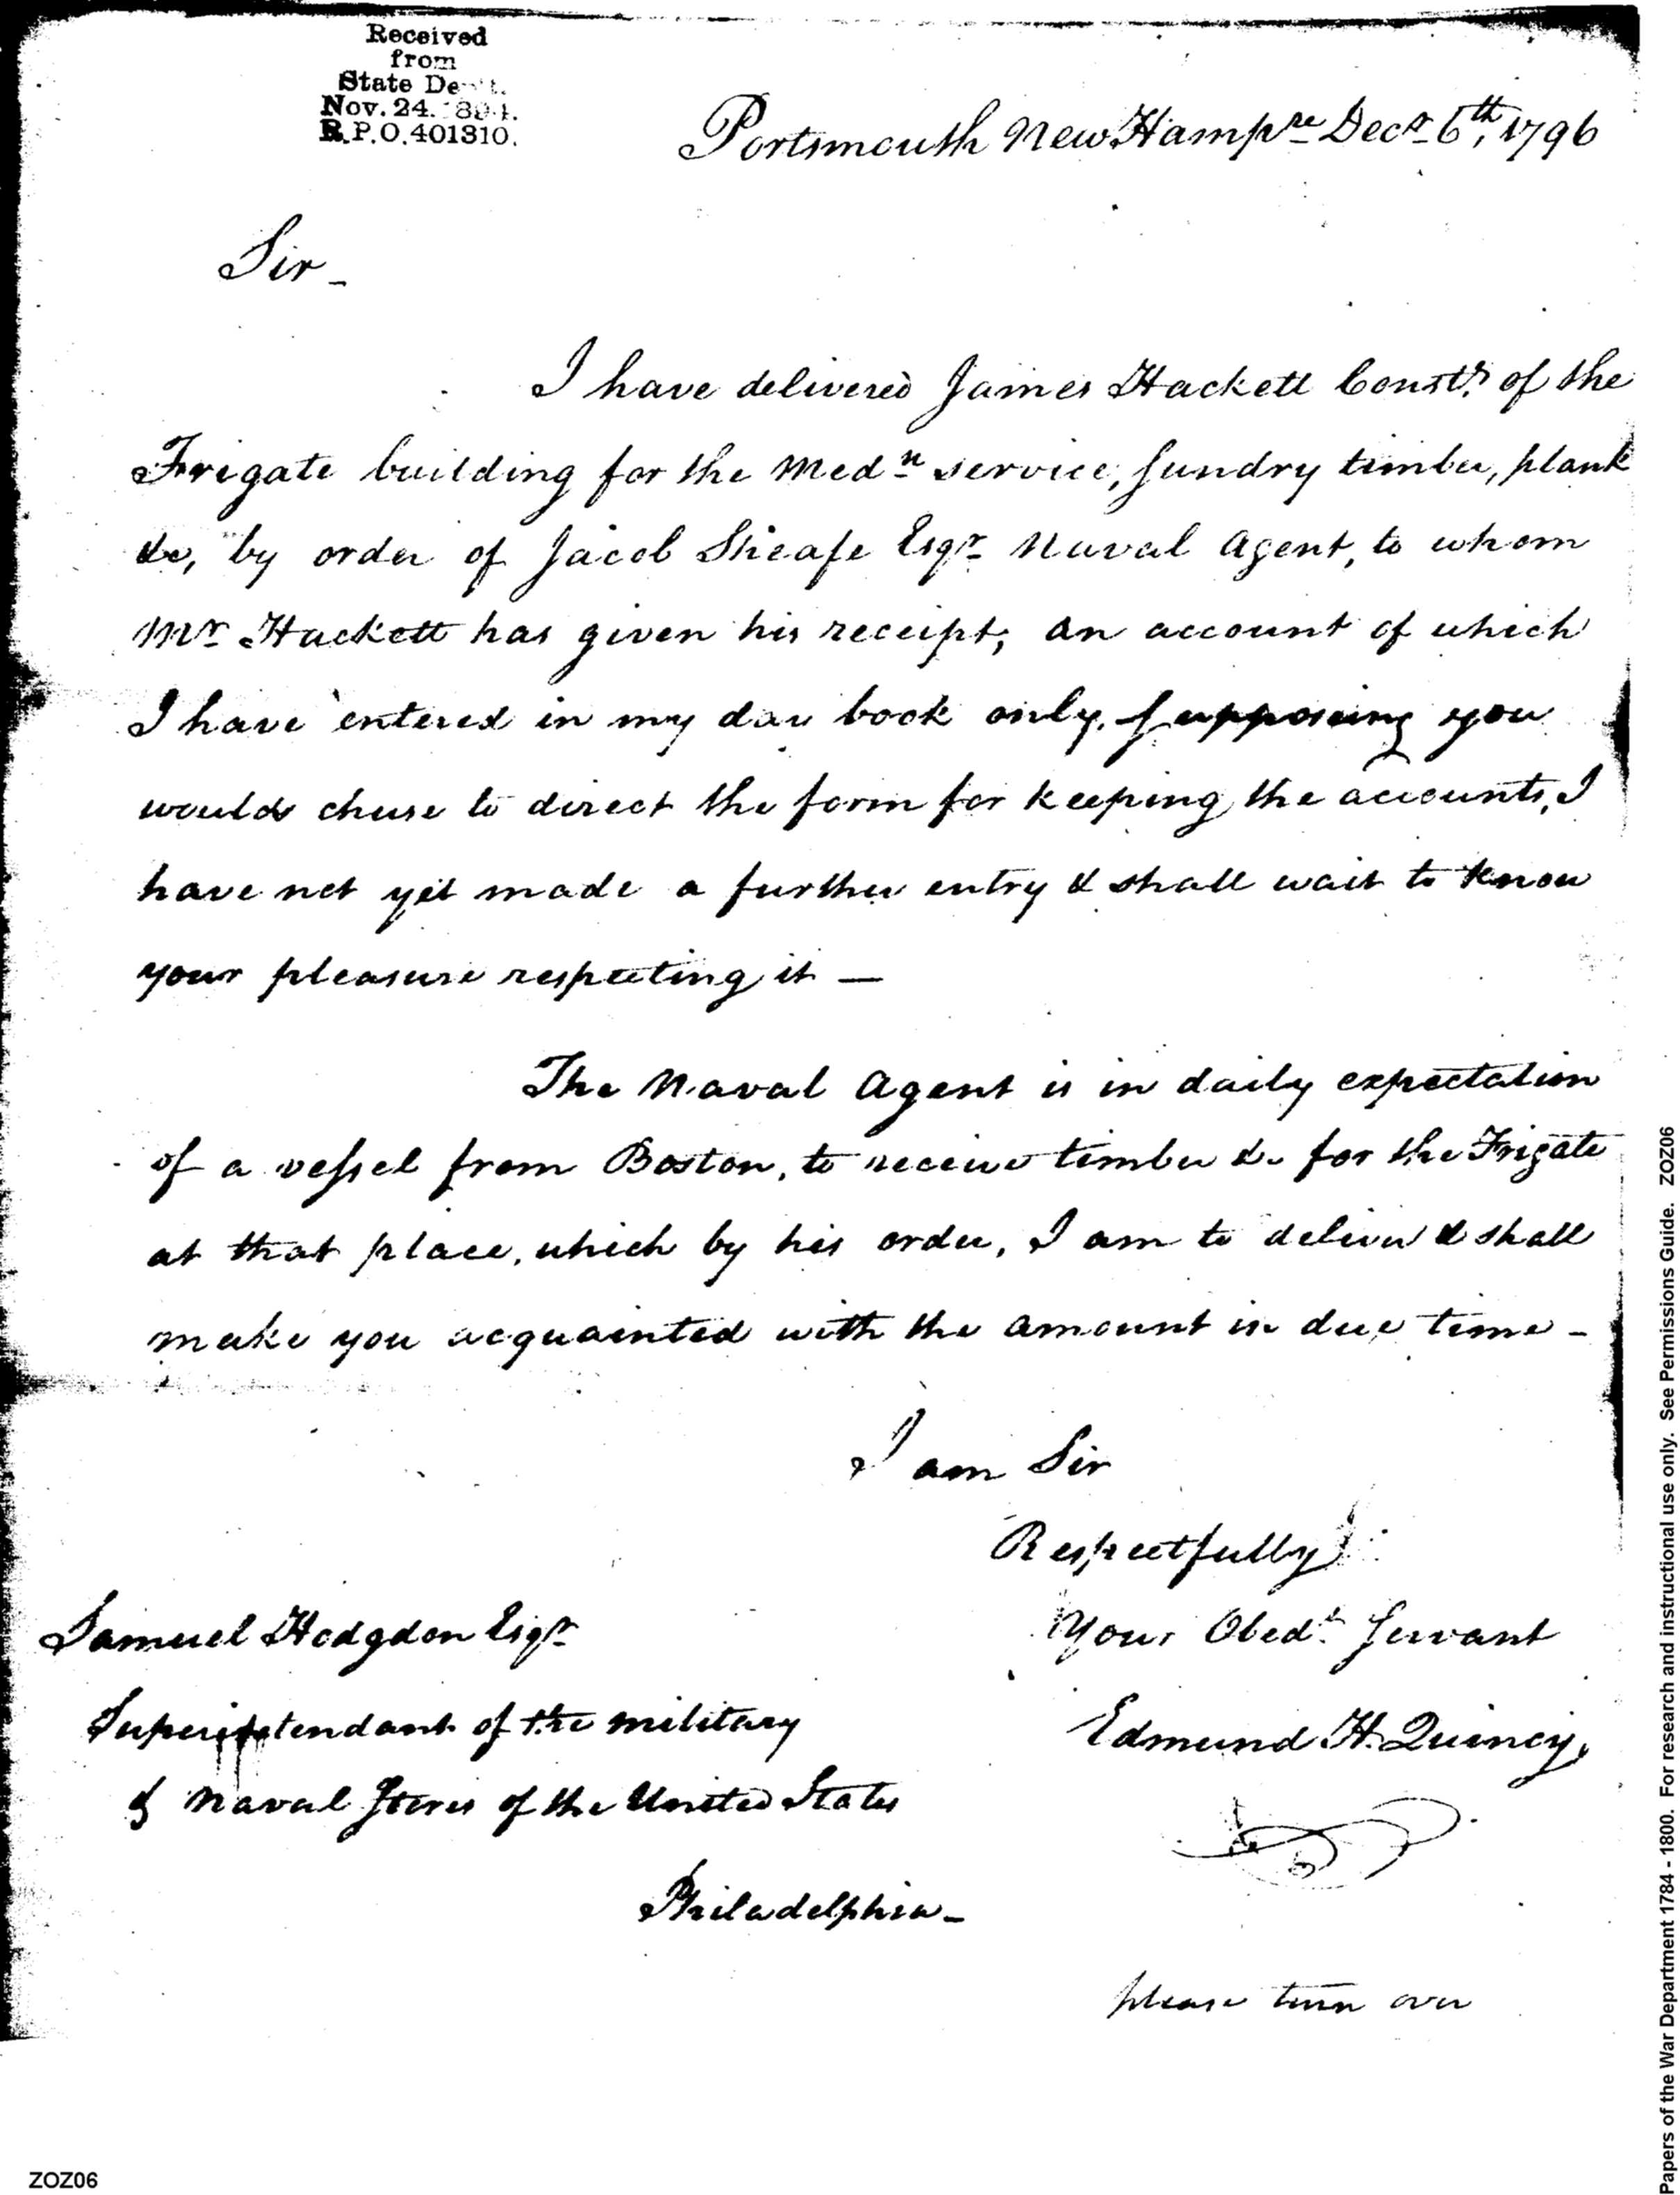 Received
from
State Dept.
Nov. 24. 1894.
R.P.O. 401310.
Portsmouth New Hampre Decr 6th, 1796
Sir -
I have delivered James Hackett Constr. of the
Frigate building for the Medn service, sundry timber, plank
&c, by order of Jacob Sheafe Esqr Naval Agent, to whom
Mr Hackett has given his receipt, an account of which
I have entered in my day book only, supposing you
would chuse to direct the form for keeping the accounts, I
have not yet made a further entry & shall wait to know
your pleasure respecting it —
The Naval Agent is in daily expectation
of a vessel from Boston, to receive timber &c for the Frigate
at that place, which by his order, I am to deliver & shall
make you acquainted with the amount in due time -
I am Sir
Respectfully
Your Obedt. Servant
Edmund H. Quincy,
Samuel Hodgdon Esqr
Superintendant of the military
& Naval Stores of the United States
Philadelphia -
please turn over
ZOZ06
Papers of the War Department 1784 - 1800. For research and instructional use only. See Permissions Guide. ZOZ06